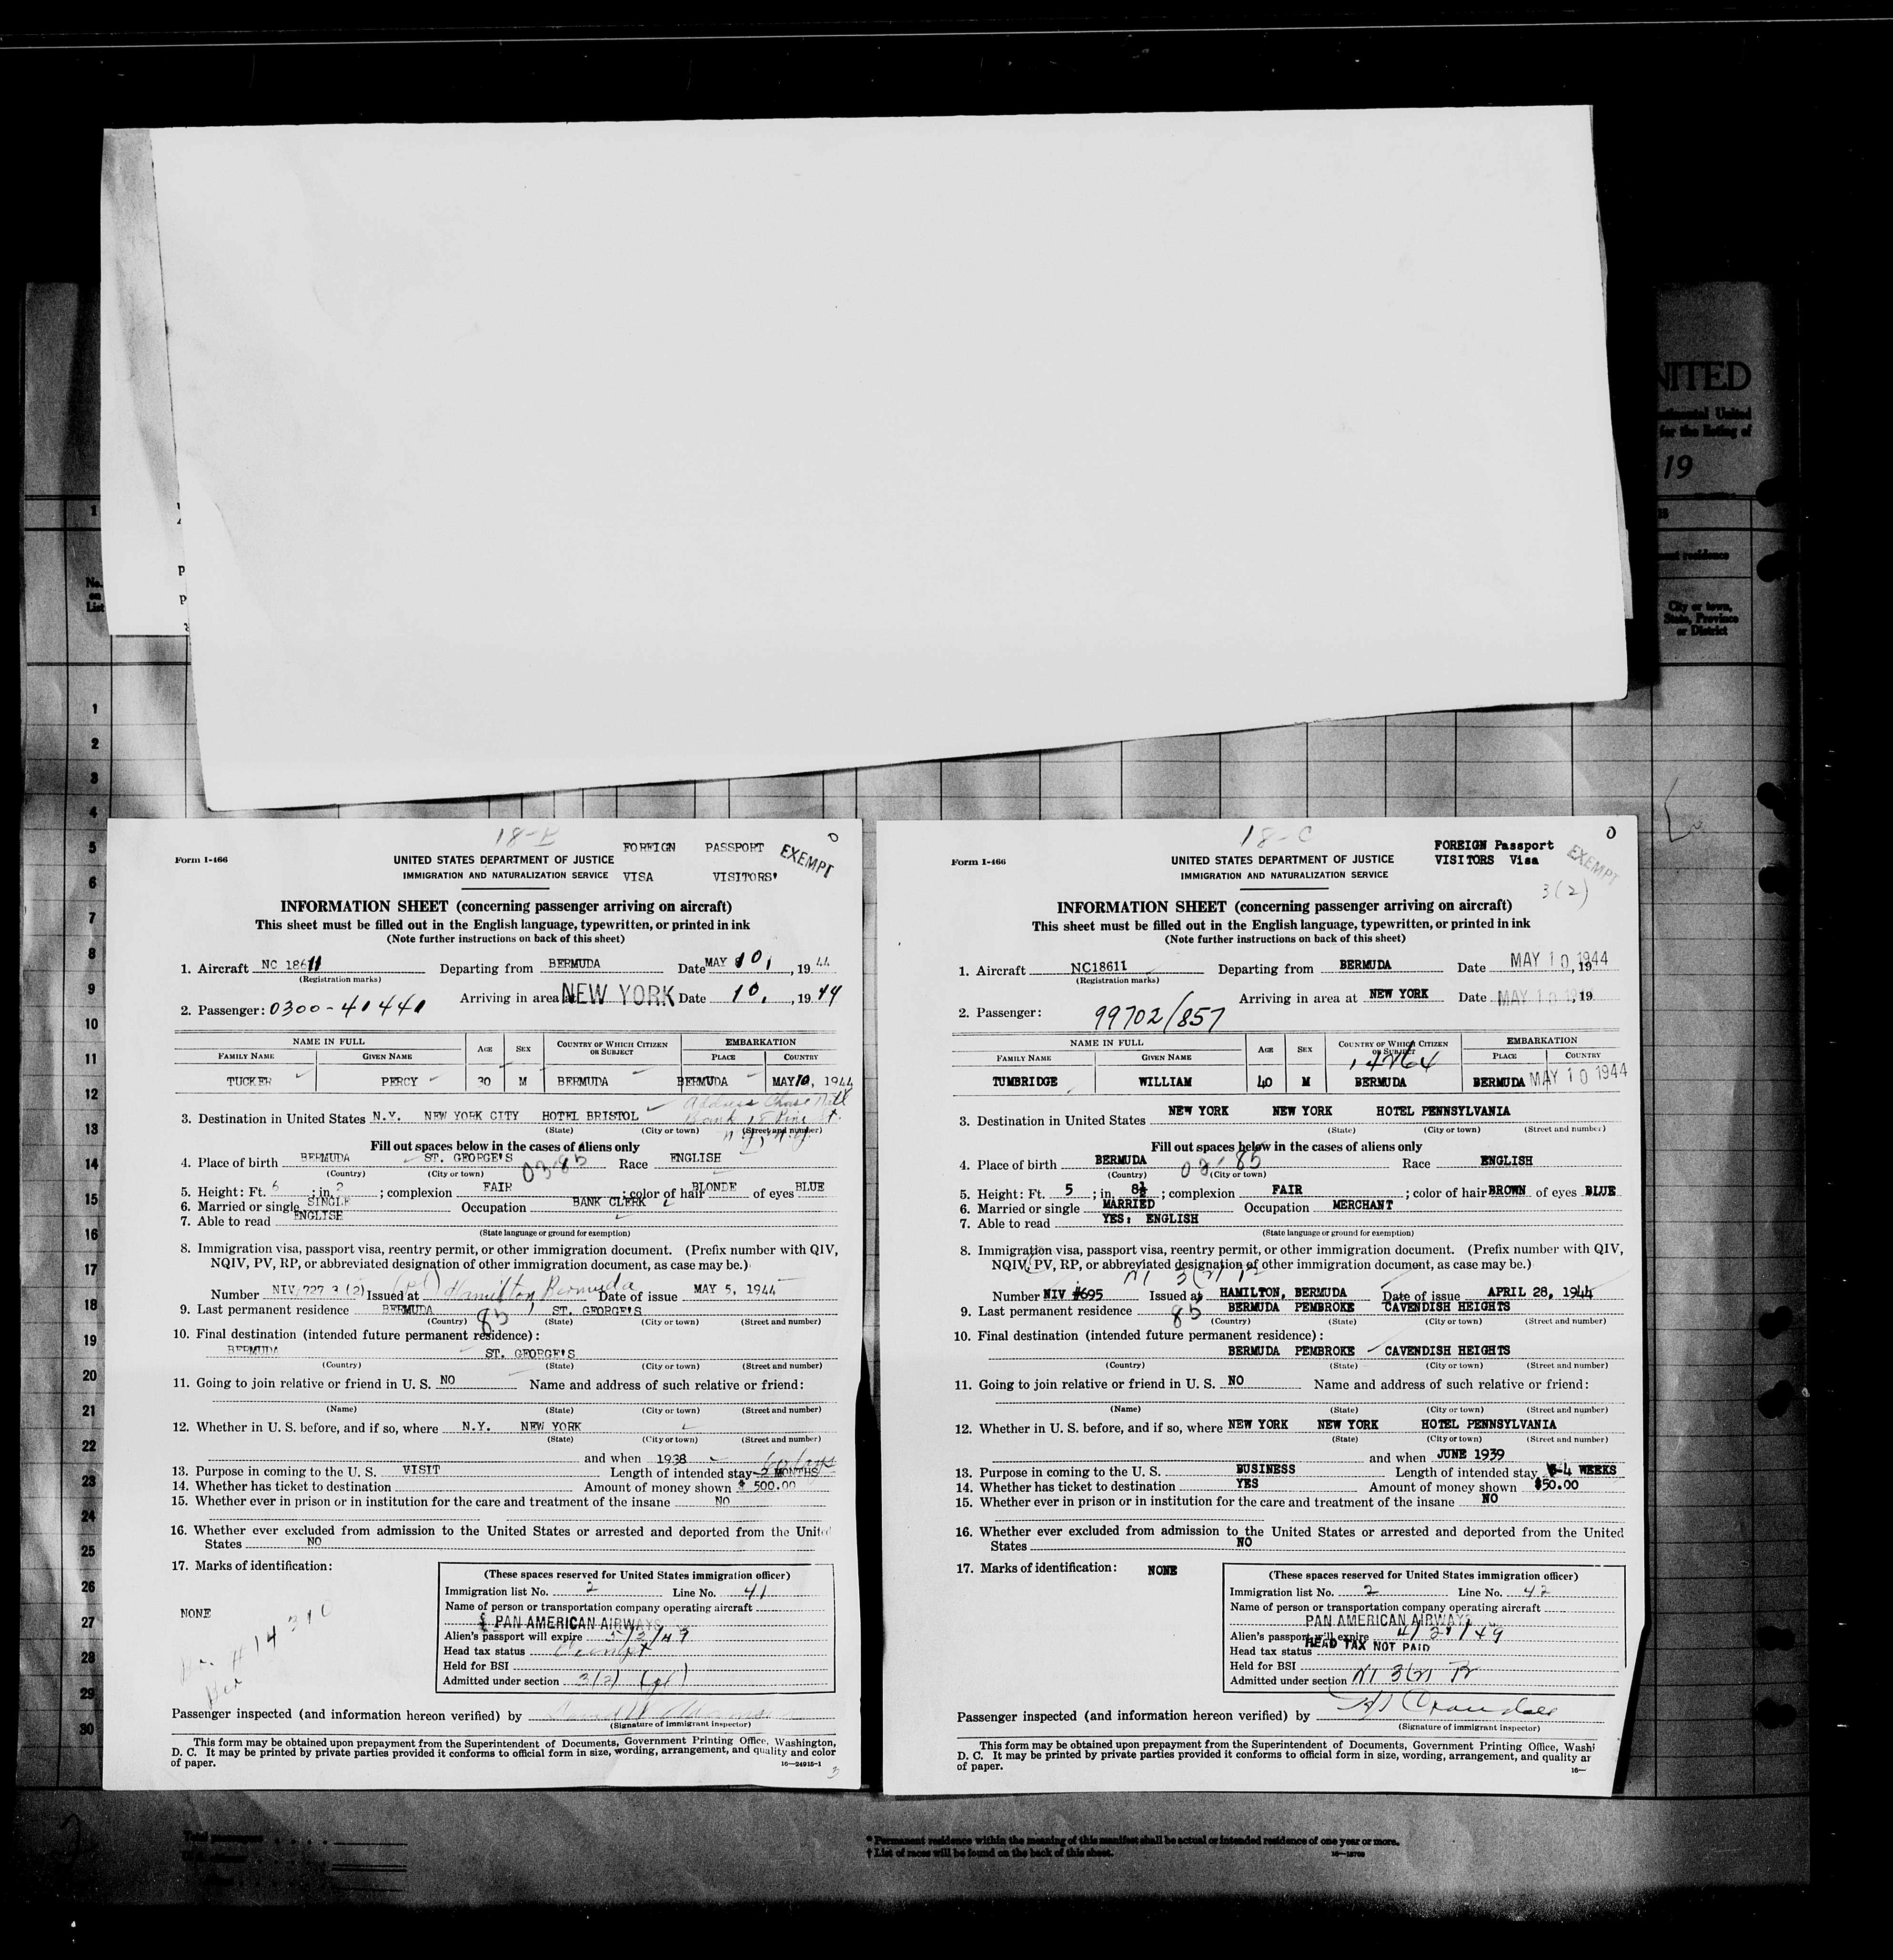 NITED
for the listing of
19
1
No.
on
List
City or town,
State, Province
or District
1
2
3
4
5
6
7
8
9
10
11
12
13
14
15
16
17
18
19
20
21
22
23
24
25
26
27
28
29
30
18-B
FOREIGN PASSPORT
EXEMPT
Form I-466
UNITED STATES DEPARTMENT OF JUSTICE
IMMIGRATION AND NATURALIZATION SERVICE VISA VISITORS'
INFORMATION SHEET (concerning passenger arriving on aircraft)
This sheet must be filled out in the English language, typewritten, or printed in ink
(Note further instructions on back of this sheet)
1. Aircraft NC 18611 Departing from BERMUDA Date MAY 10, , 19 44
(Registration marks)
Arriving in area at NEW YORK Date 10, , 19 44
2. Passenger: 0300-41441
NAME IN FULL AGE SEX COUNTRY OF WHICH CITIZEN OR SUBJECT EMBARKATION
FAMILY NAME GIVEN NAME PLACE COUNTRY
TUCKER PERCY 30 M BERMUDA BERMUDA MAY 10, 1944
Address Chase Natl
Bank 18 Pine St.
N.Y., N.Y.
3. Destination in United States N.Y. NEW YORK CITY HOTEL BRISTOL
(State) (City or town) (Street and number)
Fill out spaces below in the cases of aliens only
4. Place of birth BERMUDA ST. GEORGE'S 03-85 Race ENGLISH
(Country) (City or town)
5. Height: Ft. 6 ; in. ; complexion FAIR ; color of hair BLONDE of eyes BLUE
6. Married or single SINGLE Occupation BANK CLERK
7. Able to read ENGLISH
(State language or ground for exemption)
8. Immigration visa, passport visa, reentry permit, or other immigration document. (Prefix number with QIV,
NQIV, PV, RP, or abbreviated designation of other immigration document, as case may be.)
Number NIV 727 3 (2) Issued at Hamilton Bermuda Date of issue MAY 5, 1944
9. Last permanent residence BERMUDA 85 ST. GEORGE'S
(Country) (State) (City or town) (Street and number)
10. Final destination (intended future permanent residence):
BERMUDA ST. GEORGE'S
(Country) (State) (City or town) (Street and number)
11. Going to join relative or friend in U. S. NO Name and address of such relative or friend:
(Name) (State) (City or town) (Street and number)
12. Whether in U. S. before, and if so, where N.Y. NEW YORK
(State) (City or town) (Street and number)
and when 1938
60 days
13. Purpose in coming to the U. S. VISIT Length of intended stay 2 MONTHS
14. Whether has ticket to destination Amount of money shown $ 500.00
15. Whether ever in prison or in institution for the care and treatment of the insane NO
16. Whether ever excluded from admission to the United States or arrested and deported from the United
States NO
17. Marks of identification:
NONE
# 14310
(These spaces reserved for United States immigration officer)
Immigration list No. 2 Line No. 41
Name of person or transportation company operating aircraft
PAN AMERICAN AIRWAYS
Alien's passport will expire 5/2/49
Head tax status Exempt
Held for BSI
Admitted under section 3(2)
Passenger inspected (and information hereon verified) by
(Signature of immigrant inspector)
This form may be obtained upon prepayment from the Superintendent of Documents, Government Printing Office, Washington,
D. C. It may be printed by private parties provided it conforms to official form in size, wording, arrangement, and quality and color
of paper.
16—24915-1
3
18-C
FOREIGN Passport
VISITORS Visa
EXEMPT
3(2)
Form I-466
UNITED STATES DEPARTMENT OF JUSTICE
IMMIGRATION AND NATURALIZATION SERVICE
INFORMATION SHEET (concerning passenger arriving on aircraft)
This sheet must be filled out in the English language, typewritten, or printed in ink
(Note further instructions on back of this sheet)
1. Aircraft NC18611 Departing from BERMUDA Date MAY 10 1944, 19
(Registration marks)
Arriving in area at NEW YORK Date MAY 10 1944, 19
2. Passenger: 99702/857
NAME IN FULL AGE SEX COUNTRY OF WHICH CITIZEN OR SUBJECT EMBARKATION
FAMILY NAME GIVEN NAME PLACE COUNTRY
TUMBRIDGE WILLIAM 40 M BERMUDA BERMUDA MAY 10 1944
3. Destination in United States NEW YORK NEW YORK HOTEL PENNSYLVANIA
(State) (City or town) (Street and number)
Fill out spaces below in the cases of aliens only
4. Place of birth BERMUDA 85 Race ENGLISH
(Country) (City or town)
5. Height: Ft. 5 ; in. 8½ ; complexion FAIR ; color of hair BROWN of eyes BLUE
6. Married or single MARRIED Occupation MERCHANT
7. Able to read YES: ENGLISH
(State language or ground for exemption)
8. Immigration visa, passport visa, reentry permit, or other immigration document. (Prefix number with QIV,
NQIV, PV, RP, or abbreviated designation of other immigration document, as case may be.)
Number NIV #695 Issued at HAMILTON, BERMUDA Date of issue APRIL 28, 1944
9. Last permanent residence 85 BERMUDA PEMBROKE CAVENDISH HEIGHTS
(Country) (State) (City or town) (Street and number)
10. Final destination (intended future permanent residence):
BERMUDA PEMBROKE CAVENDISH HEIGHTS
(Country) (State) (City or town) (Street and number)
11. Going to join relative or friend in U. S. NO Name and address of such relative or friend:
(Name) (State) (City or town) (Street and number)
12. Whether in U. S. before, and if so, where NEW YORK NEW YORK HOTEL PENNSYLVANIA
(State) (City or town) (Street and number)
and when JUNE 1939
13. Purpose in coming to the U. S. BUSINESS Length of intended stay 4 WEEKS
14. Whether has ticket to destination YES Amount of money shown $50.00
15. Whether ever in prison or in institution for the care and treatment of the insane NO
16. Whether ever excluded from admission to the United States or arrested and deported from the United
States NO
17. Marks of identification: NONE
(These spaces reserved for United States immigration officer)
Immigration list No. 2 Line No. 42
Name of person or transportation company operating aircraft
PAN AMERICAN AIRWAYS
Alien's passport will expire 4/21/49
Head tax status HEAD TAX NOT PAID
Held for BSI
Admitted under section
Passenger inspected (and information hereon verified) by
(Signature of immigrant inspector)
This form may be obtained upon prepayment from the Superintendent of Documents, Government Printing Office, Wash
D. C. It may be printed by private parties provided it conforms to official form in size, wording, arrangement, and quality ar
of paper.
16—
* Permanent residence within the meaning of this manifest shall be actual or intended residence of one year or more.
† List of races will be found on the back of this sheet.